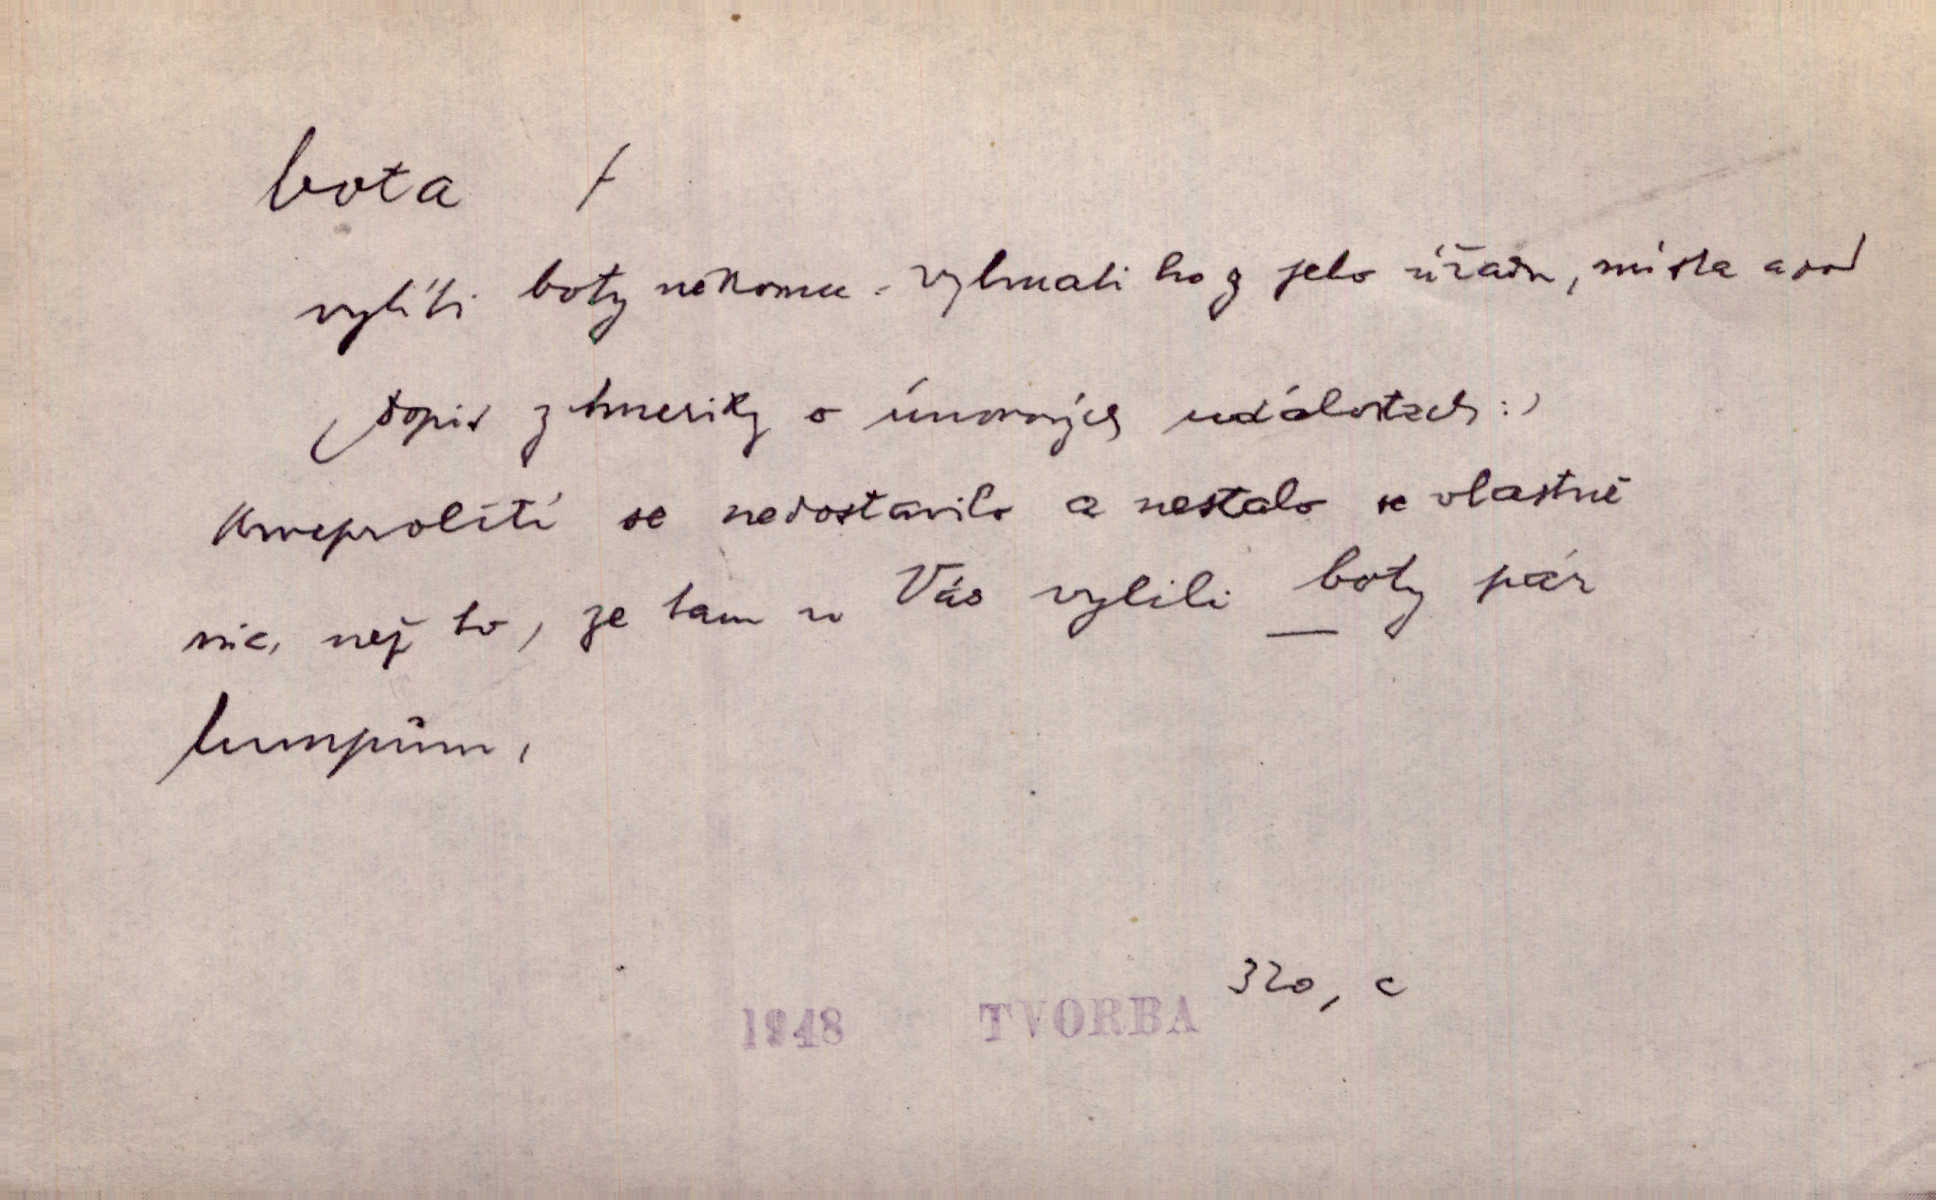 bota f
vylíti boty někomu - vyhnati ho z jeho úřadu, místa a pod
(dopis z Ameriky o únorových událostech:)
Krveprolití se nedostavilo a nestalo se vlastně
nic, než to, že tam u Vás vylili boty pár
lumpům,
320, c
1948 TVORBA